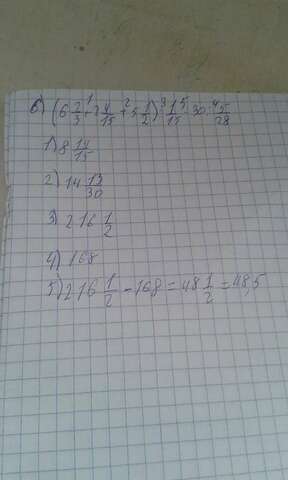 6) (6 2/3 + 2 4/15 + 5 1/2) : 1/15 - 30 : 5/28
1) 8 14/15
2) 14 13/30
3) 216 1/2
4) 168
5) 216 1/2 - 168 = 48 1/2 = 48,5